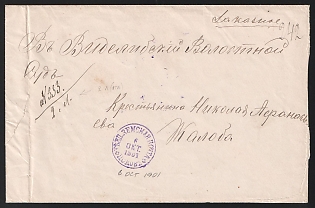 Заказное
Въ Видемлибскій Волостной
Судъ
№ 333.
Крестьянина Николая Афанась
ева
Жалоба
ЗЕМСКАЯ ПОЧТА
6
ОКТ.
1901
6 ОСТ 1901